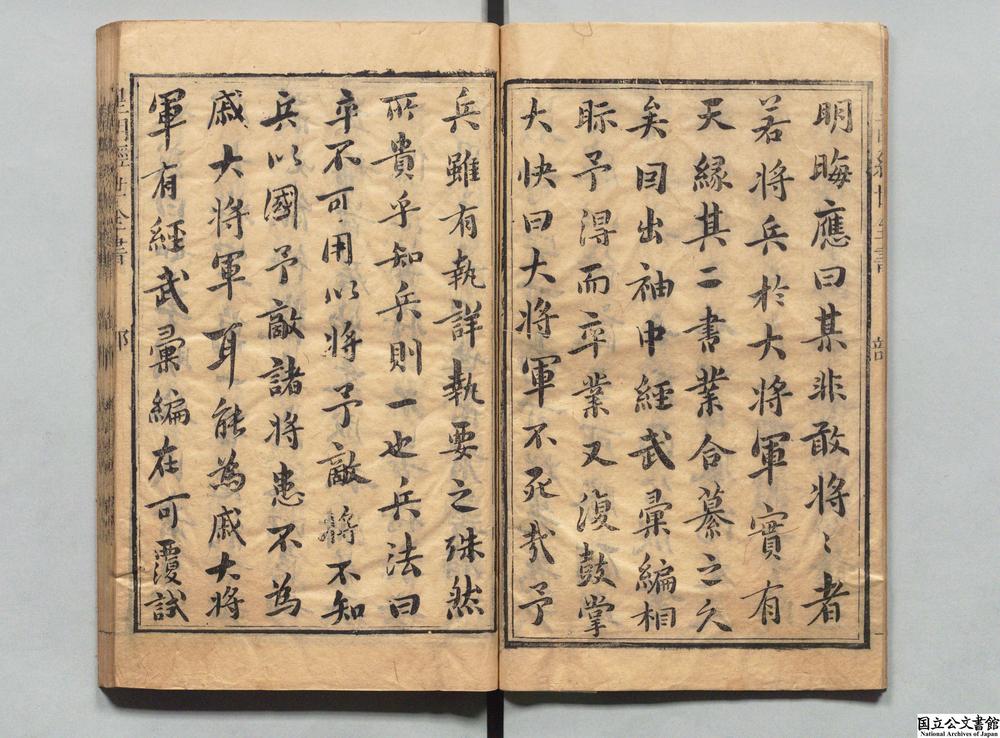 明晦應曰某非敢將〻者
若將兵於大將軍實有
天縁其二書業合纂之久
矣囙出袖中經武彙編相
眎予得而卒業又復鼓掌
大快曰大將軍不死哉予
兵雖有執詳執要之殊然
所貴乎知兵則一也兵法曰
卒不可用以將予敵將不知
兵以國予敵諸將患不為
戚大將軍耳能為戚大將
軍有經武彙編在可覆試
国立公文書館
National Archives of Japan